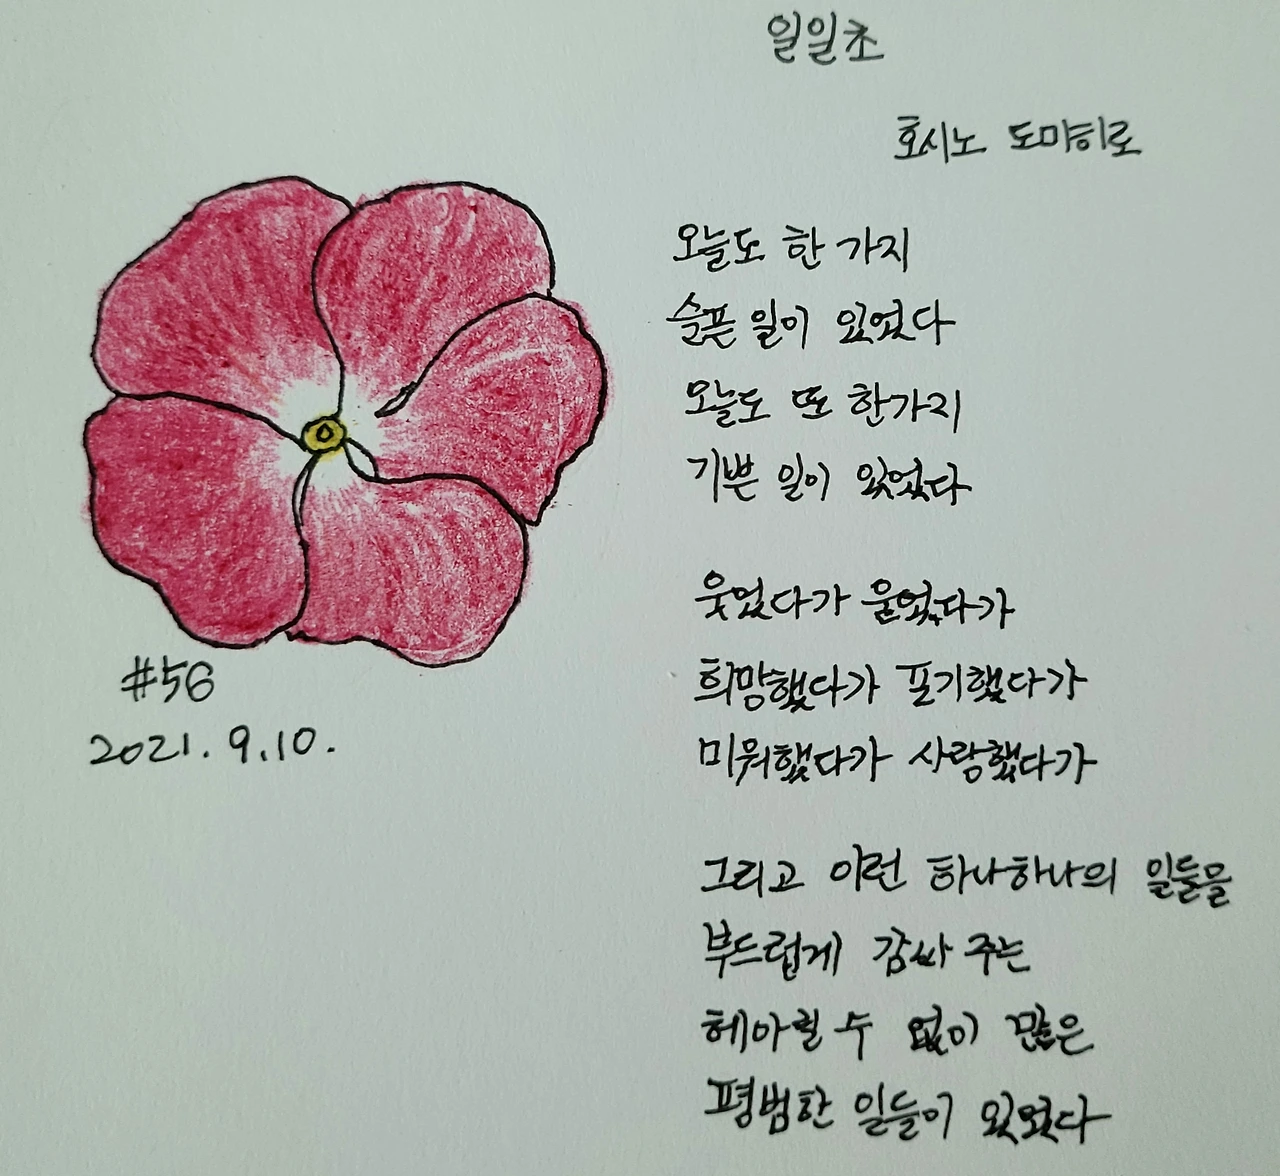 일일초
호시노 도미히로
오늘도 한 가지
슬픈 일이 있었다
오늘도 또 한가지
기쁜 일이 있었다
웃었다가 울었다가
희망했다가 포기했다가
미워했다가 사랑했다가
그리고 이런 하나하나의 일들을
부드럽게 감싸 주는
헤아릴 수 없이 많은
평범한 일들이 있었다
#56
2021. 9. 10.